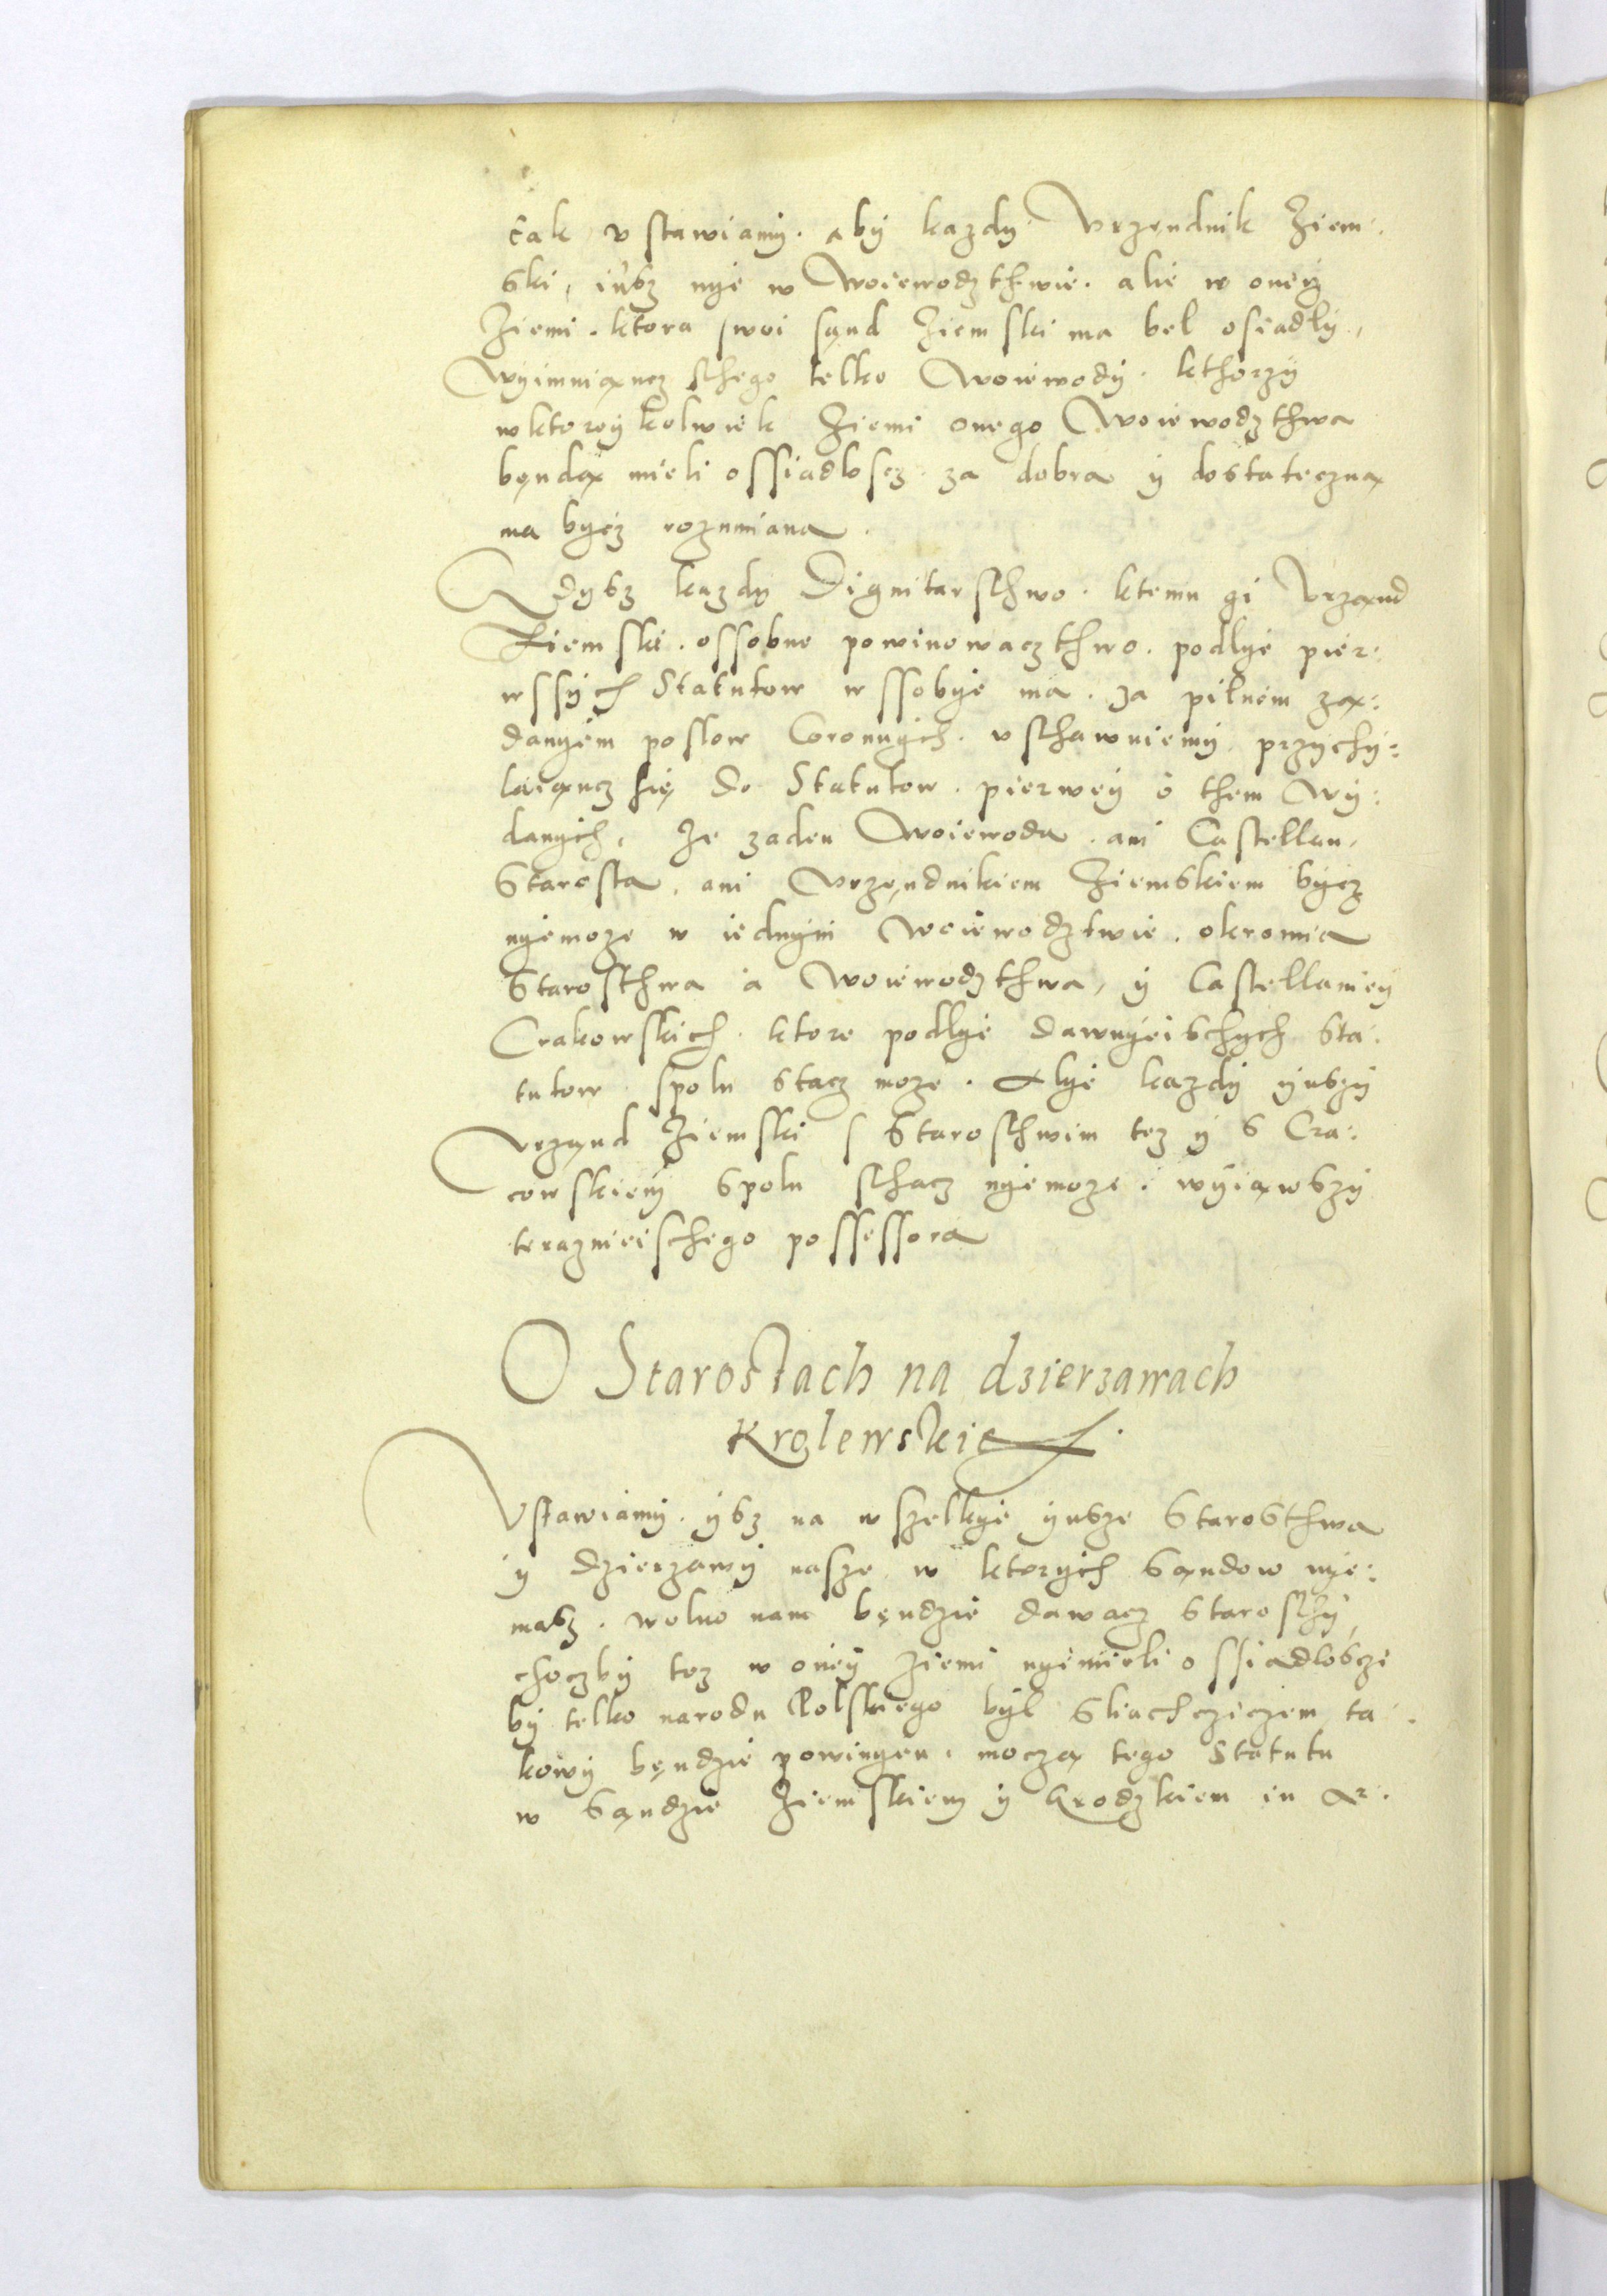 tak vstawiamÿ. abÿ kazdÿ Vrzęndnik Ziem:
ski, iusz nye w Woiewodzthwie. alie w oneÿ
Ziemi. ktora swoi sąnd Ziemski ma bel osiadlÿ,
Wÿimuiąncz sthego telko Woiewodÿ. kthorzÿ
w ktoreÿkolwiek Ziemi onego Woiewodzthwa
bęndą mieli ossiadloscz za dobra ÿ dostateczną
ma bycz rozumiana.
Gdysz kazdy Dignitarsthwo. ktemu gi Vrząnd
Ziemski. ossobne powinowaczthwo. podlye pier:
wssÿch Statutow w ssobye ma. za pilnem zą:
danyem poslow Coronnych. vsthawuiemÿ przychÿ:
laiąncz się do Statutow. pierweÿ o them wÿ:
danych, Ze zaden Woiewoda. ani Castellan,
Starosta, ani Vrzęndnikiem Ziemskiem bÿcz
nyemoze w iednÿm Woiewodztwie. okromia
Starosthwa a Woiewodzthwa, ÿ Castellanieÿ
Crakowskich. ktore podlye dawnyeischych sta:
tutow spolu stacz moze. Alye kazdÿ ÿnszÿ
Vrząnd Ziemski s Starosthwim tez ÿ s Cra:
cowskieÿm spolu sthacz nyemoze. wÿiąwszÿ
terazniesschego possessora
O Starostach na dzierzawach
Krolewskich.
Vstawiamÿ. ÿsz na wszelkye ÿnsze Starosthwa
ÿ dzierzawÿ nasze w ktorÿch sąndow nye:
masz. wolno nam bęndzie dawacz Starosthÿ,
choczbÿ tez w oneÿ Ziemi nyemieli ossiadloscze
bÿ telko narodu Polskiego bÿl sliachcziczem ta:
kowÿ bęndzie powinyen. moczą tego Statutu
w sąndzie Ziemskiem ÿ Grodzkiem in ar: